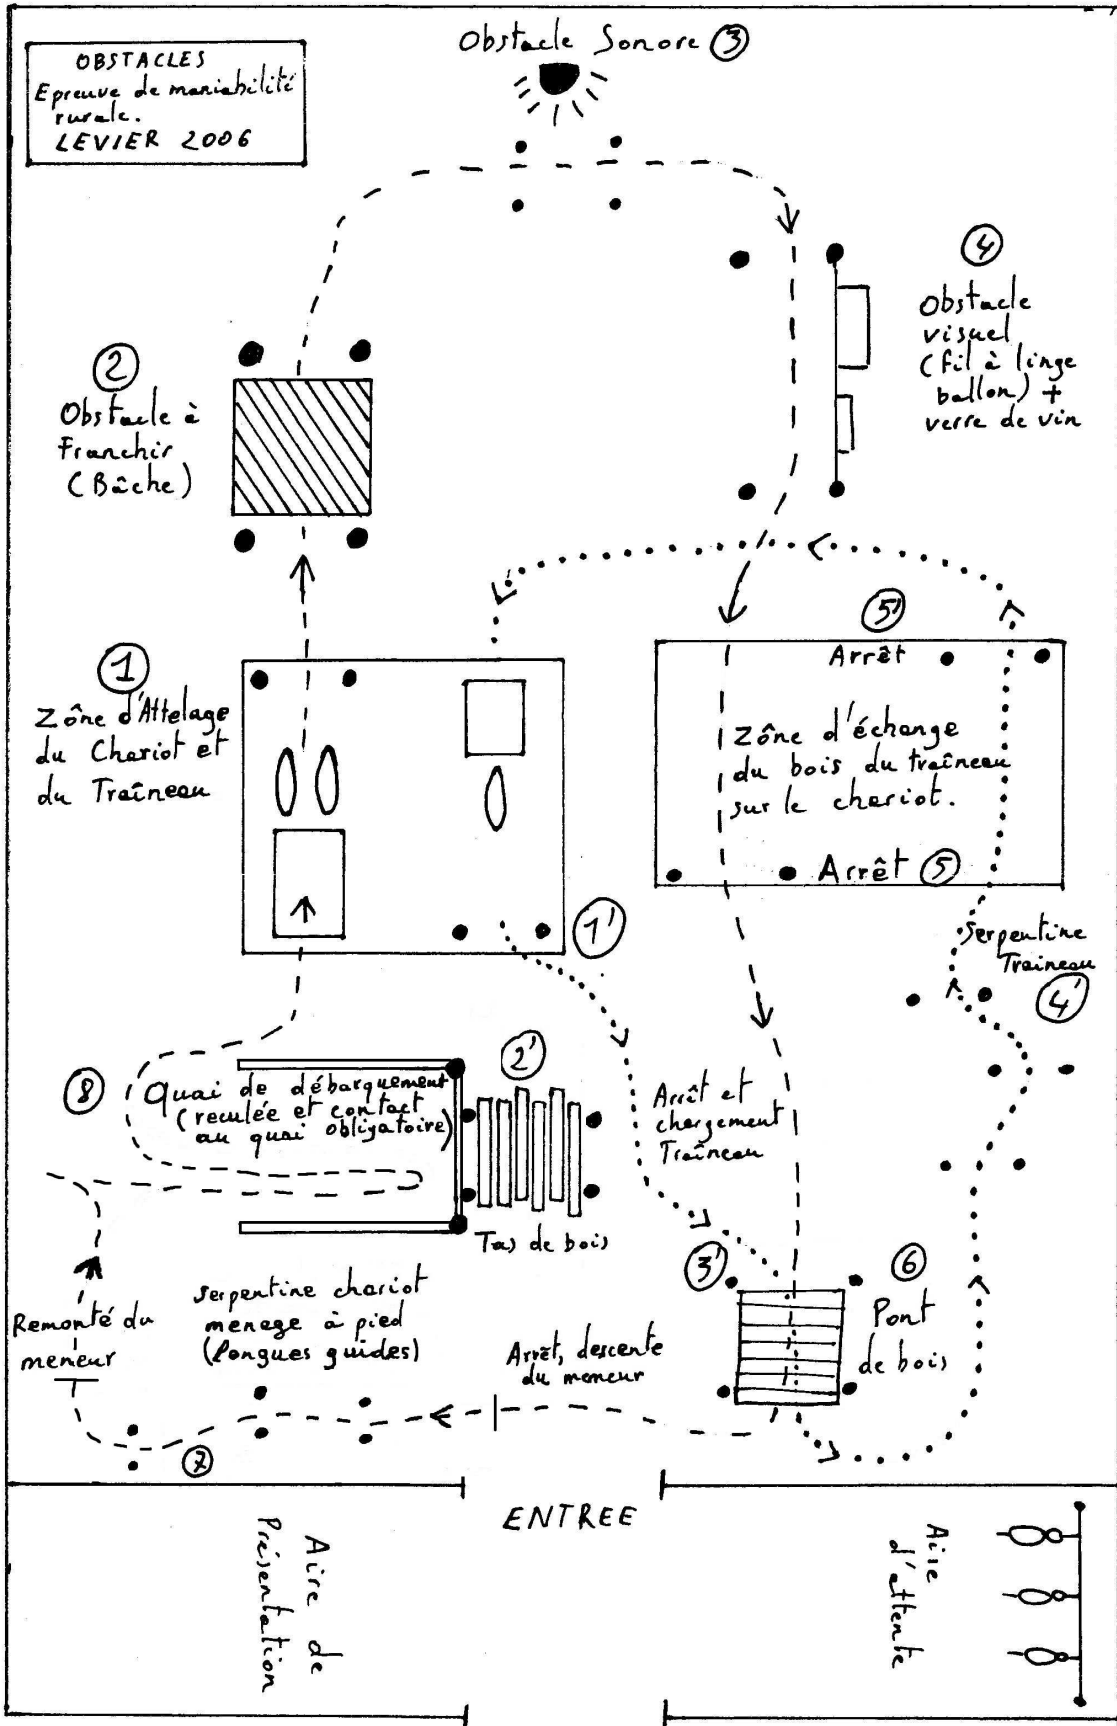 OBSTACLES
Epreuve de maniabilité
rurale.
LEVIER 2006
Obstacle Sonore 3
4
Obstacle
visuel
(fil à linge
ballon) +
verre de vin
2
Obstacle à
Franchir
(Bâche)
1
Zône d'Attelage
du Chariot et
du Traîneau
5'
Arrêt
Zône d'échange
du bois du traîneau
sur le chariot.
Arrêt 5
1'
Serpentine
Traineau
4'
8
Quai de débarquement
(reculée et contact
au quai obligatoire)
2'
Tas de bois
Arrêt et
chargement
Traîneau
3'
6
Pont
de bois
Remonté du
meneur
serpentine chariot
menage à pied
(longues guides)
Arrêt, descente
du meneur
7
ENTREE
Aire de
Présentation
Aise
d'attente